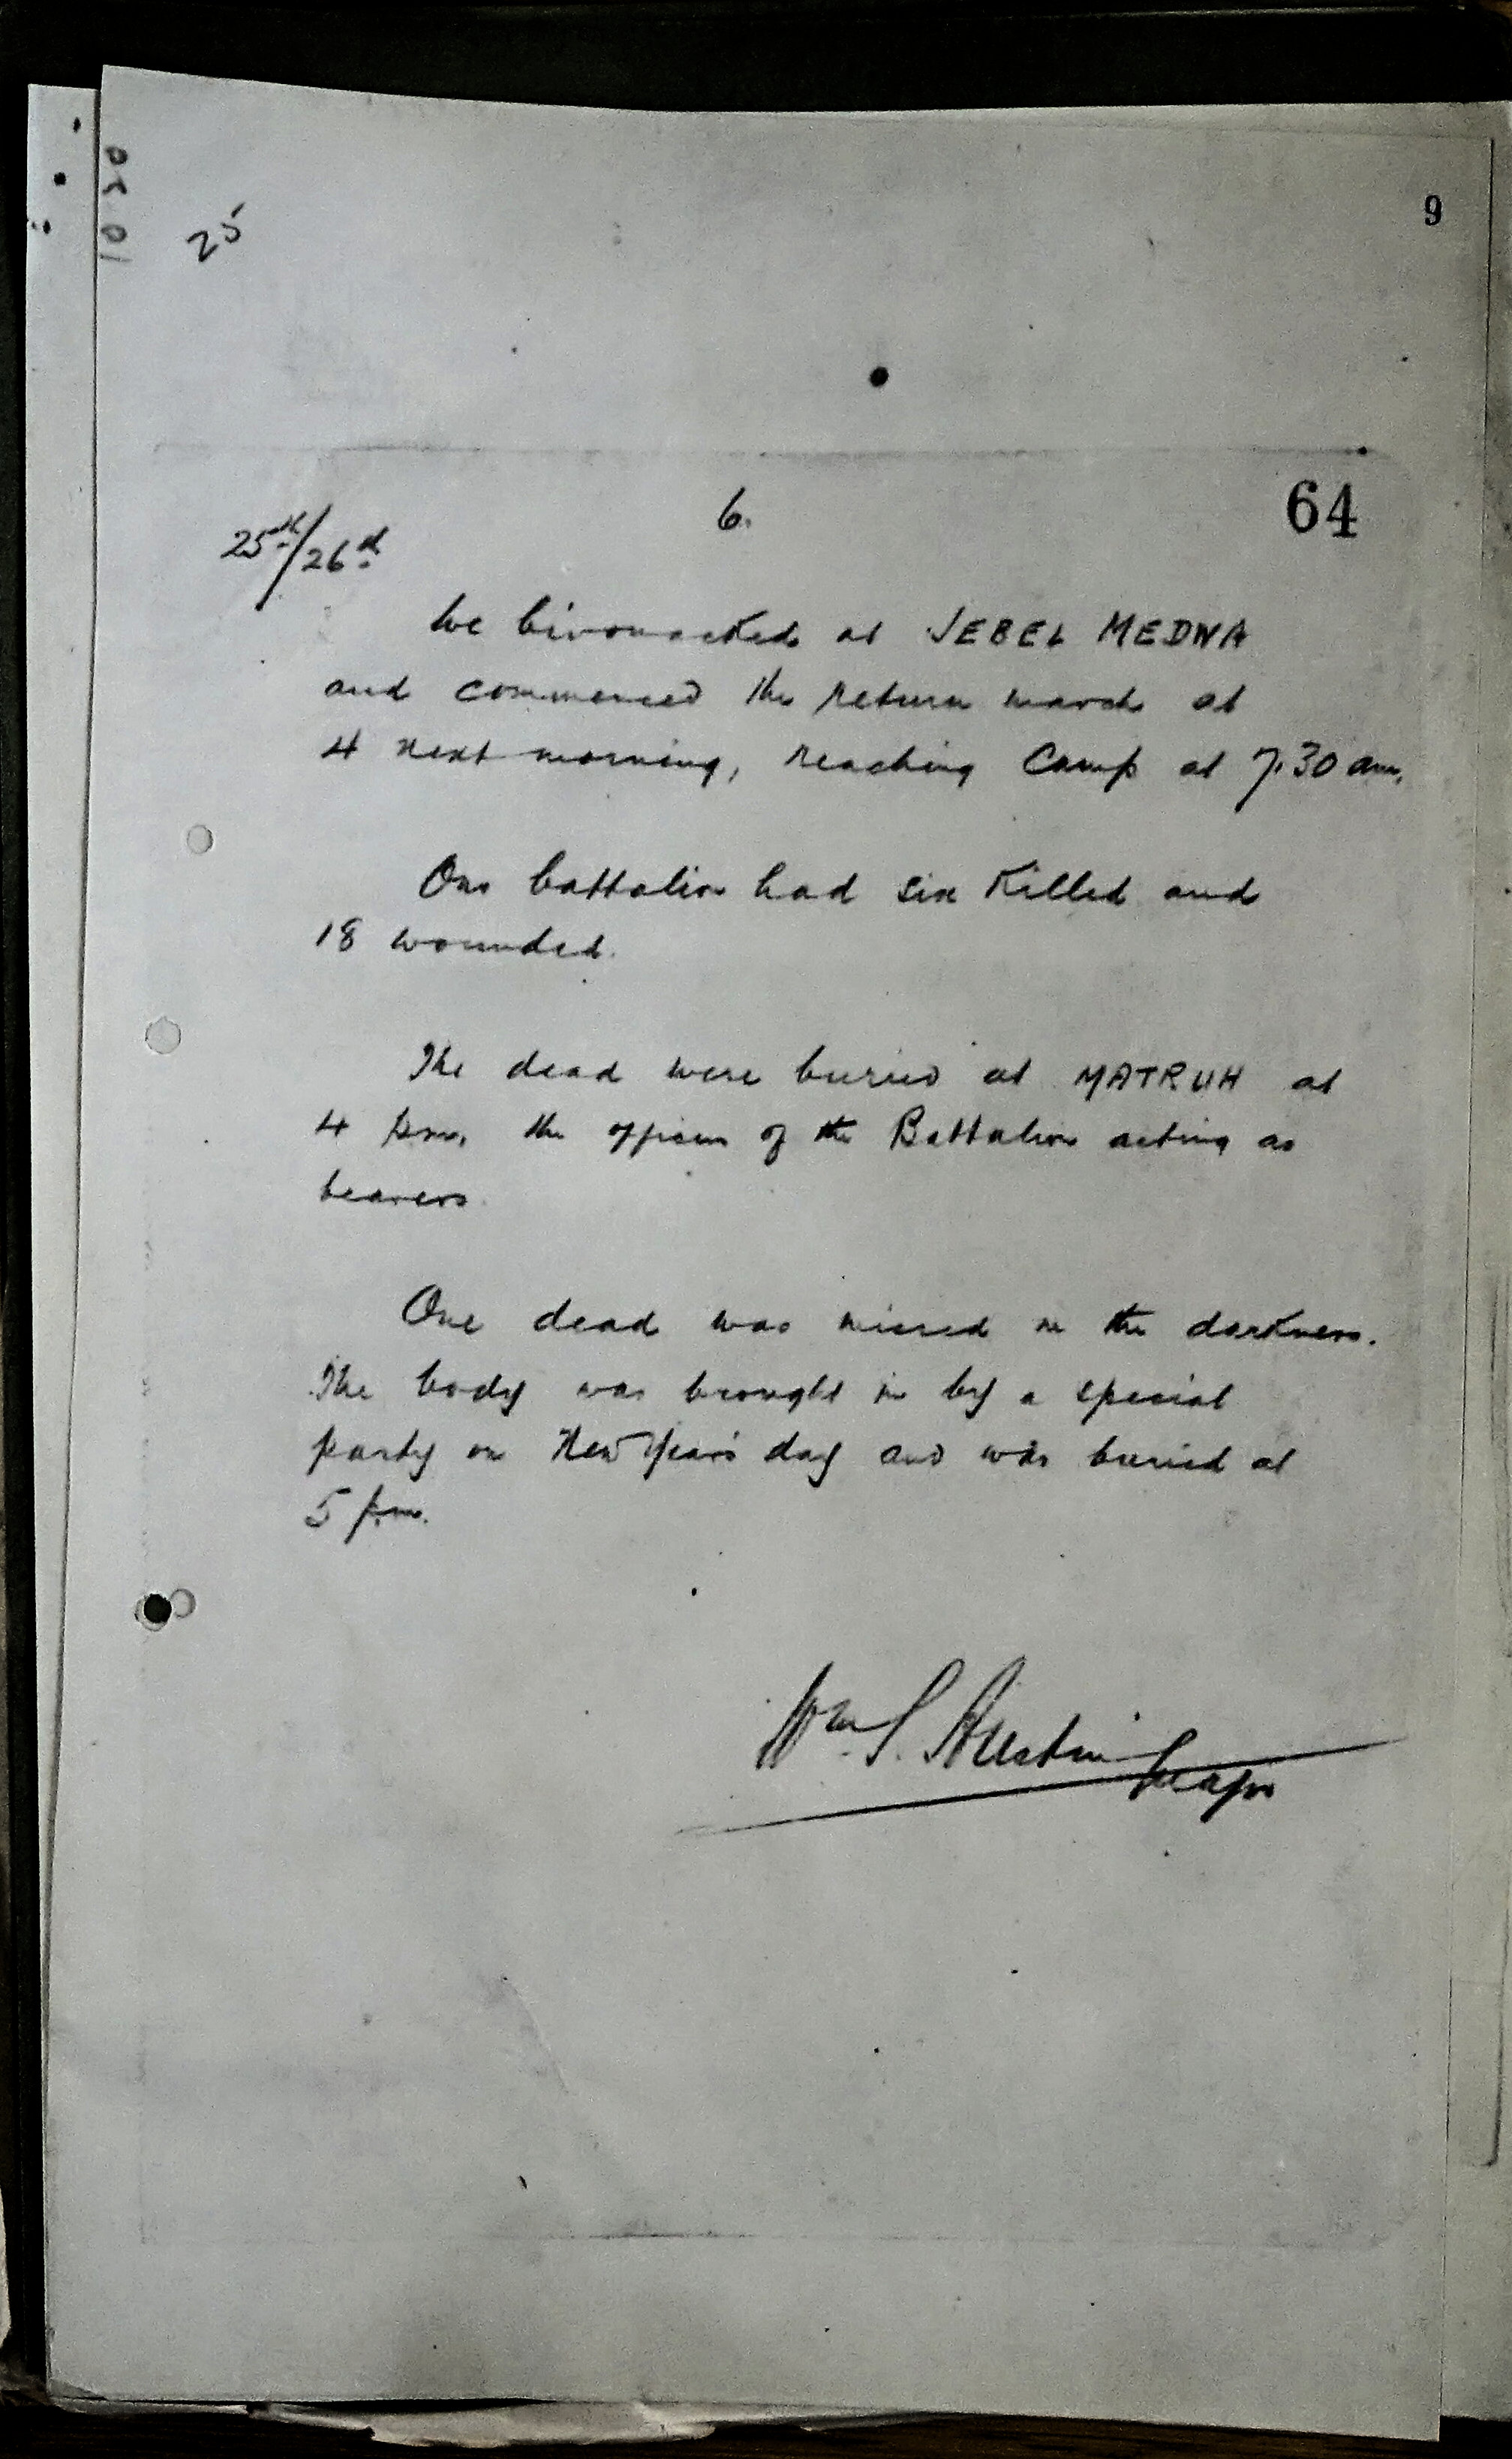 25
9
6.
64
25th/26th
We bivouacked at JEBEL MEDWA
and commenced the return march at
4 next morning, reaching Camp at 7.30 am.
Our battalion had six Killed and
18 wounded.
The dead were buried at MATRUH at
4 pm, the officers of the Battalion acting as
bearers.
One dead was missed in the darkness.
The body was brought in by a special
party on New Year's day and was buried at
5 pm.
Wm S. Austin Major